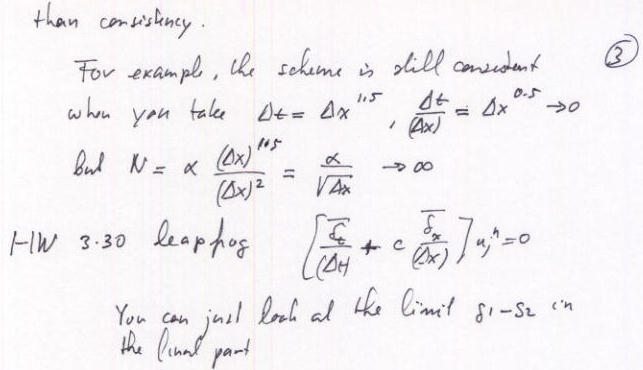 than consistency.
For example, the scheme is still consistent ③
when you take Δt = Δx^1.5, Δt/(Δx) = Δx^0.5 → 0
but N = α (Δx)^1.5/(Δx)^2 = α/√Δx → ∞
HW 3.30 leapfrog [δ̅t/(Δt) + c δ̅x/(Δx)] u_j^n = 0
You can just look at the limit g1-g2 in
the final part